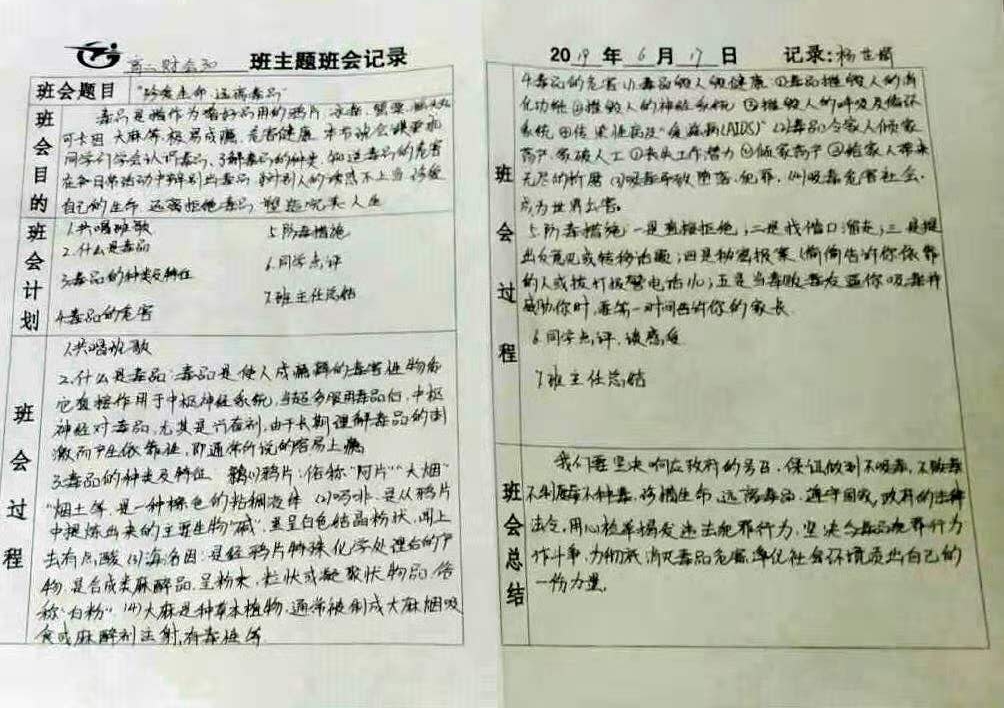 高二财会30 班主题班会记录
班会题目 "珍爱生命,远离毒品"
班会目的
毒品是指作为嗜好品用的鸦片 冰毒
可卡因 大麻等,极易成瘾,危害健康
同学们学会认识毒品,了解毒品的种类,知道毒品的危害
在今日常活动中辨别出毒品 对别人的诱惑不上当 珍爱
自己的生命 远离拒绝毒品,塑造完美人生
班会计划
1.共唱班歌
2.什么是毒品
3.毒品的种类及特征
4.毒品的危害
5.防毒措施
6.同学点评
7.班主任总结
班会过程
1.共唱班歌
2.什么是毒品:毒品是使人成瘾癖的毒害性物质
它直接作用于中枢神经系统,当超多服用毒品后,中枢
神经对毒品,尤其是兴奋剂,由于长期理解毒品的刺
激而产生依靠性,即通常所说的容易上瘾
3.毒品的种类及特征 (1)鸦片:俗称"阿片""大烟"
"烟土等,是一种棕色的粘稠液体 (2)吗啡:是从鸦片
中提炼出来的主要生物"碱",呈白色结晶粉状,闻上
去有点酸 (3)海洛因:是经鸦片特殊化学处理后的产
物,是合成类麻醉品,呈粉末、粒状或凝聚状物品,俗
称"白粉" (4)大麻是种草本植物,通常被制成大麻烟吸
食或麻醉剂注射,有毒性等
2019 年 6 月 17 日 记录:杨世娟
班会过程
4.毒品的危害:(1)毒品毁人毁健康 ①毒品摧毁人的消
化功能②摧毁人的神经系统 ③摧毁人的呼吸及循环
系统④传染性病及"爱滋病(AIDS)" (2)毒品令家人倾家
荡产,家破人亡①丧失工作潜力②倾家荡产③给家人带来
无尽的折磨 (3)吸毒导致堕落、犯罪,(4)吸毒危害社会,
成为世界公害。
5.防毒措施:一是直接拒绝;二是找借口溜走;三是提
出反意见或转移话题;四是秘密报案(偷偷告诉你依靠
的人或拨打报警电话110;五是当毒贩毒友逼你吸毒并
威胁你时,要第一时间告诉你的家长
6.同学点评,谈感受
7.班主任总结
班会总结
我们要坚决响应政府的号召,保证做到不吸毒,不贩毒
不制毒不种毒,珍惜生命,远离毒品,遵守国家,政府的法律
法令,用心检举揭发违法犯罪行为,坚决与毒品犯罪行为
作斗争,为彻底消灭毒品危害,净化社会环境质出自己的
一份力量。